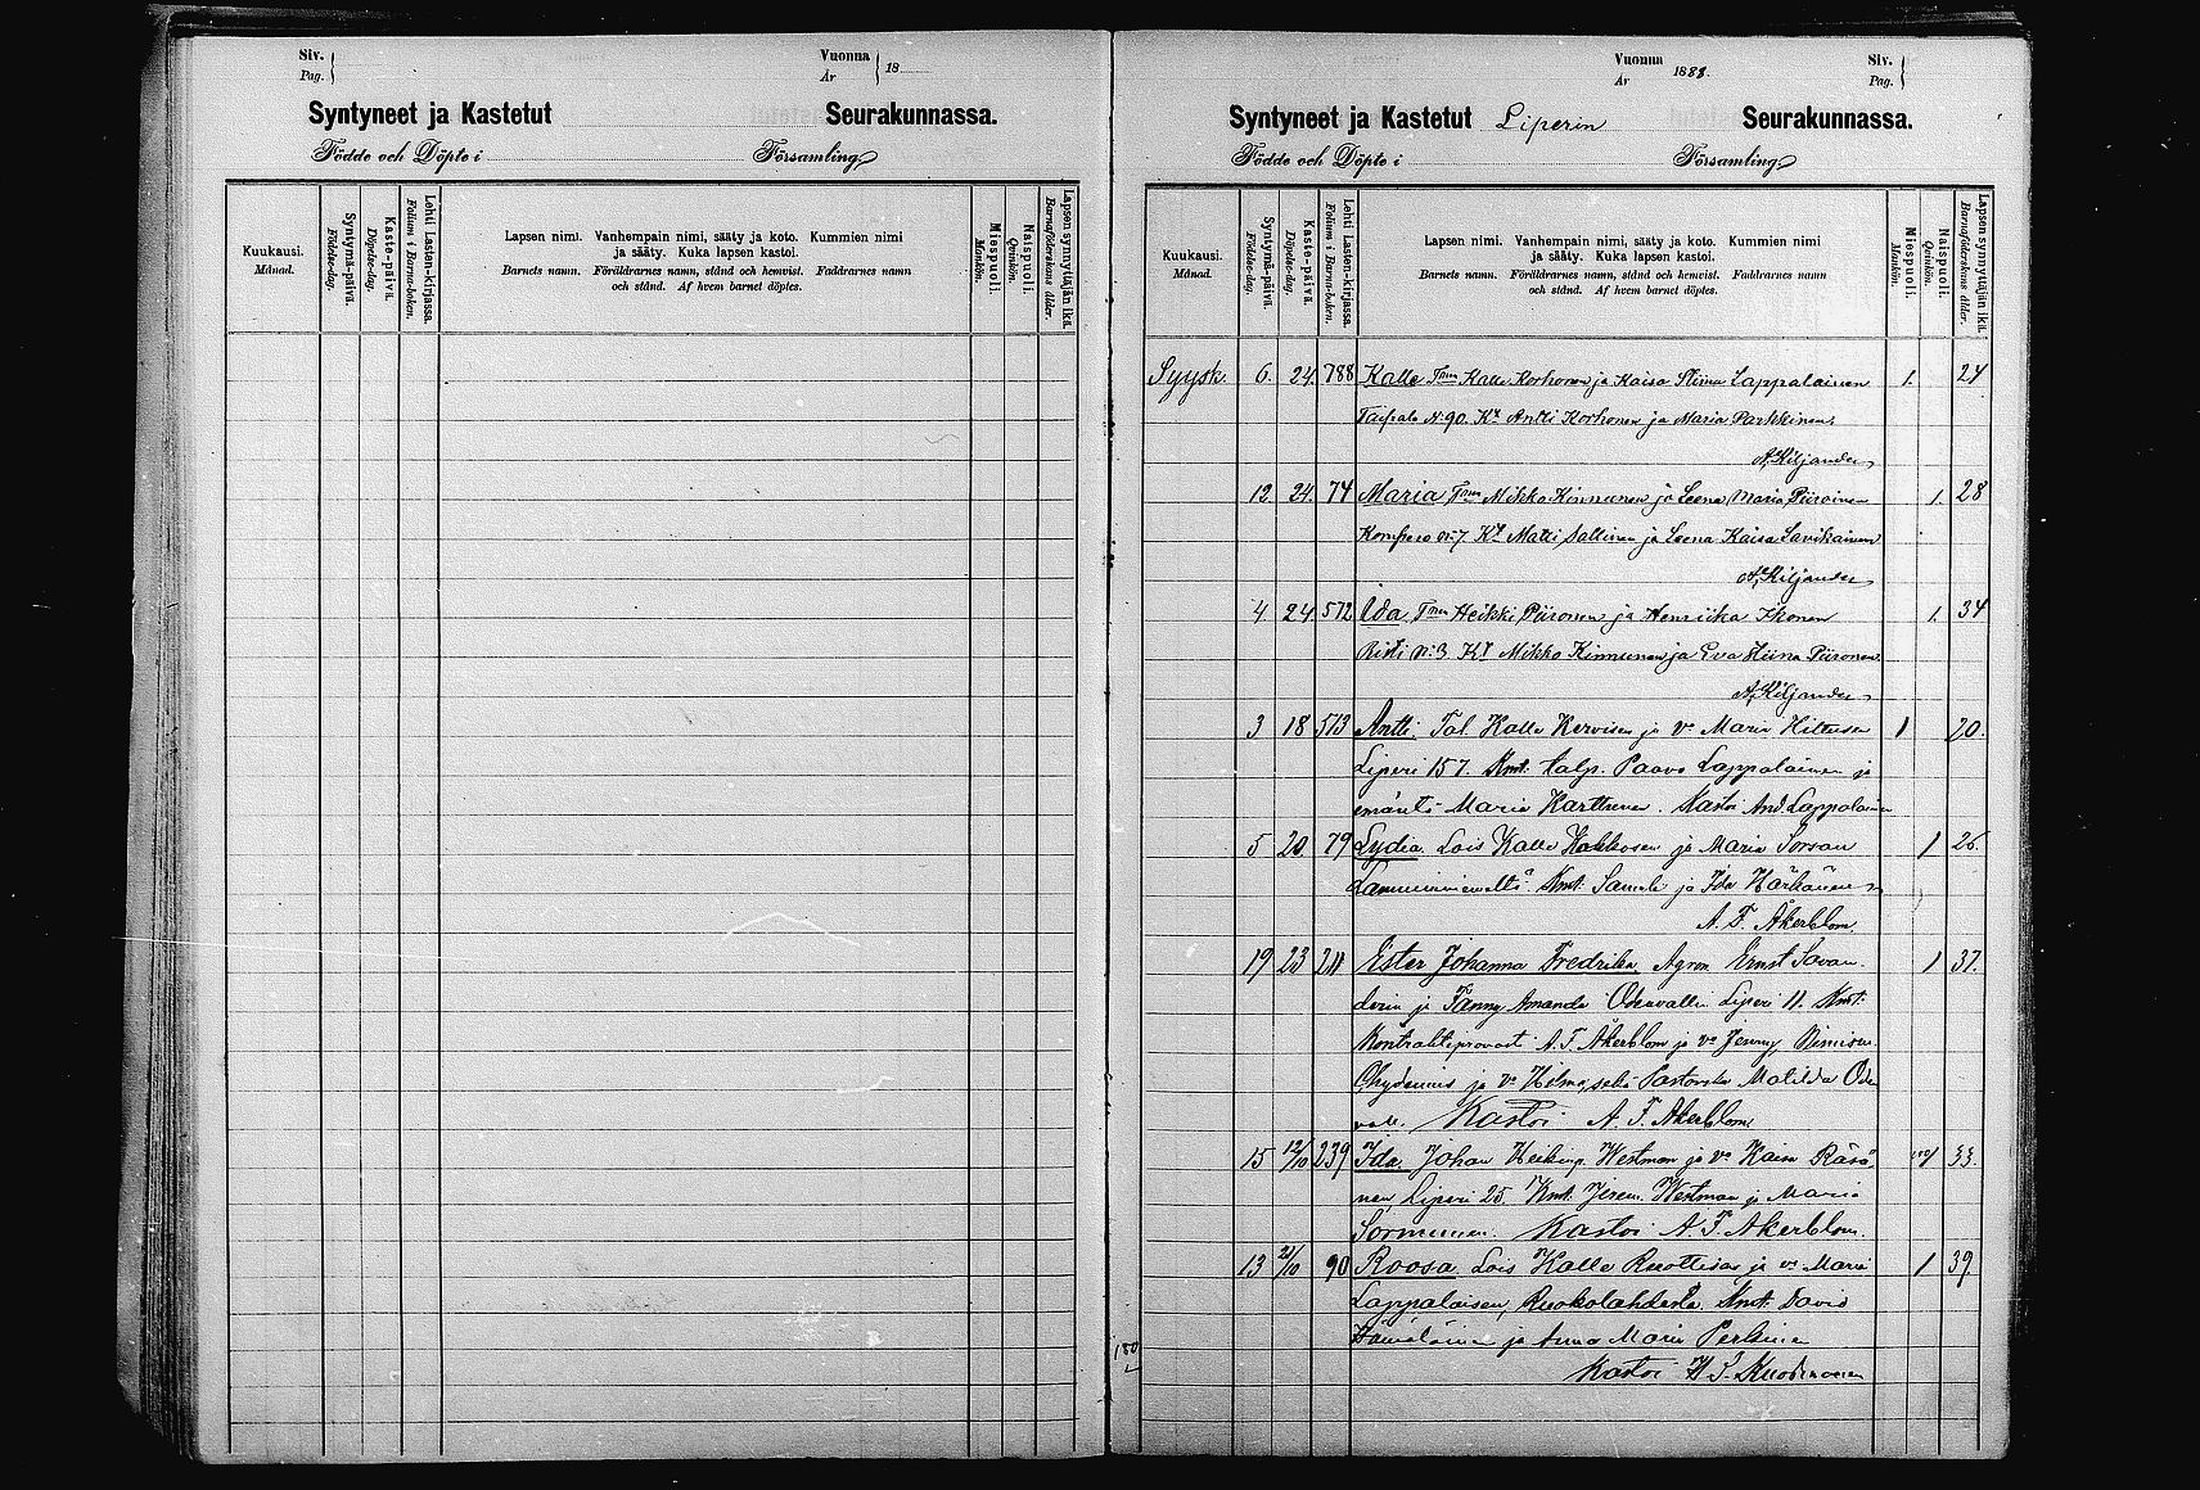 Siv.
Pag.
Vuonna
År
18
Syntyneet ja Kastetut Seurakunnassa.
Födde och Döpte i Församling.
Kuukausi.
Månad.
Syntymä-päivä.
Födelse-dag.
Kaste-päivä.
Döpelse-dag.
Lehti Lasten-kirjassa.
Folium i Barna-boken.
Lapsen nimi. Vanhempain nimi, sääty ja koto. Kummien nimi
ja sääty. Kuka lapsen kastoi.
Barnets namn. Föräldrarnes namn, stånd och hemvist. Faddrarnes namn
och stånd. Af hvem barnet döptes.
Miespuoli.
Mankön.
Naispuoli.
Qvinkön.
Lapsen synnyttäjän ikä.
Barnaföderskans ålder.
Vuonna
År
1888.
Siv.
Pag.
Syntyneet ja Kastetut Liperin Seurakunnassa.
Födde och Döpte i Församling.
Kuukausi.
Månad.
Syntymä-päivä.
Födelse-dag.
Kaste-päivä.
Döpelse-dag.
Lehti Lasten-kirjassa.
Folium i Barna-boken.
Lapsen nimi. Vanhempain nimi, sääty ja koto. Kummien nimi
ja sääty. Kuka lapsen kastoi.
Barnets namn. Föräldrarnes namn, stånd och hemvist. Faddrarnes namn
och stånd. Af hvem barnet döptes.
Miespuoli.
Mankön.
Naispuoli.
Qvinkön.
Lapsen synnyttäjän ikä.
Barnaföderskans ålder.
Syysk. 6. 24. 788 Kalle Tmn Kalle Korhonen ja Kaisa Stiina Lappalainen 1. 24
Taipale N:90. Kt Antti Korhonen ja Maria Parkkinen.
A. Kiljander
12. 24. 74 Maria Tmn Mikko Kinnunen ja Leena Maria Piiroinen 1. 28
Kompero N:7 Kt Matti Sallinen ja Leena Kaisa Savikainen
A. Kiljander
4. 24. 572 Ida Tmn Heikki Piironen ja Henriika Ikonen 1. 34
Risti N:3 Kt Mikko Kinnunen ja Eva Stiina Piironen.
A. Kiljander
3 18 513 Antti. Tal. Kalle Kervisen ja vo Maria Hiltusen 1 20.
Liperi 157. Kmt. talp. Paavo Lappalainen ja
emäntä Maria Karttunen. Kastoi And. Lappalainen
5 20. 79 Lydia. Lois Kalle Hakkosen ja Maria Sorsan 1 26.
Kmt. Samuli ja Ida
A. F. Åkerblom.
19 23 211 Ester Johanna Fredrika Agron. Ernst Savan- 1 37.
derin ja Fanny Amanda Odenvallin Liperi 11. Kmt.
Kontrahtiprovasti A. F. Åkerblom ja vo Jenny,
ja vo Hilma, sekä Pastorska Matilda Oden
vall. Kastoi A. F. Åkerblom.
15 12/10 239 Ida. Johan Heikinp. Westman ja vo Kaisa Räsä- 1 33.
nen, Liperi 25. Kmt. Jerem. Westman ja Maria
Sormunen. Kastoi A. F. Åkerblom.
13 21/10 90 Roosa Lois Kalle Ruottisen ja vo Maria 1 39.
Lappalaisen, Ruokolahdesta. Kmt. David
Hämäläinen ja Anna Maria
Kastoi
180